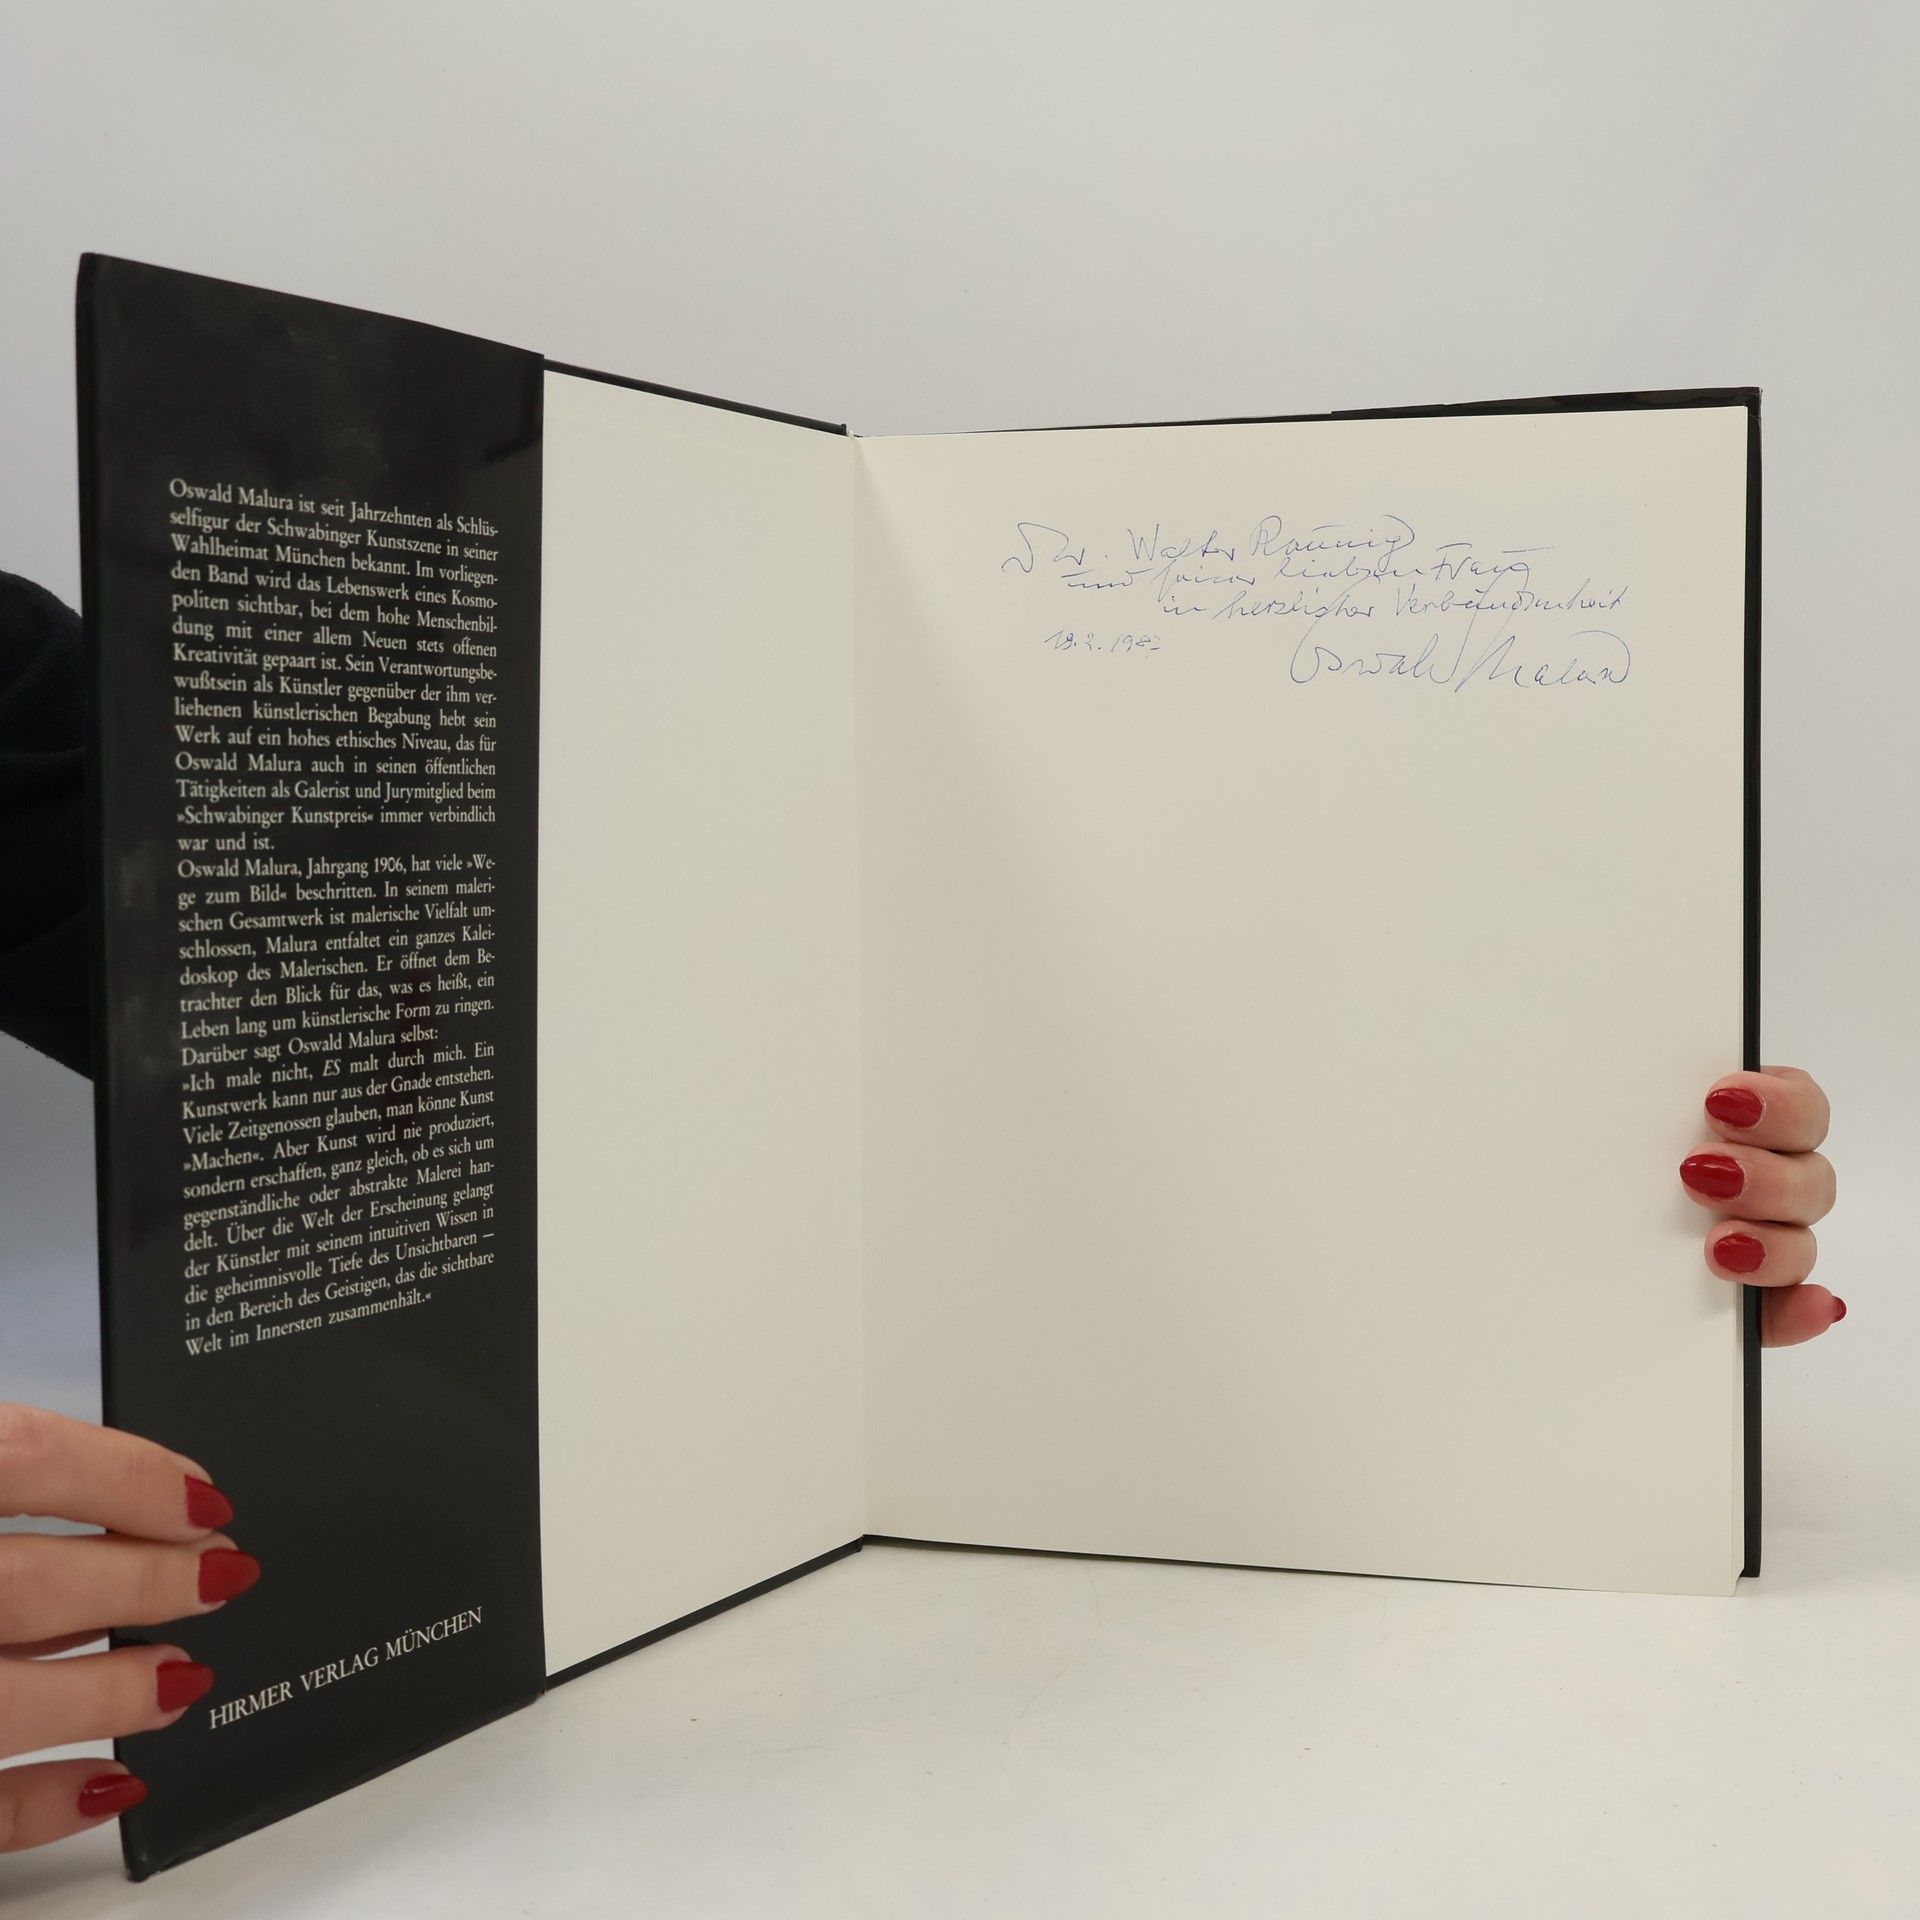 Oswald Malura ist seit Jahrzehnten als Schlüs-
selfigur der Schwabinger Kunstszene in seiner
Wahlheimat München bekannt. Im vorliegen-
den Band wird das Lebenswerk eines Kosmo-
politen sichtbar, bei dem hohe Menschenbil-
dung mit einer allem Neuen stets offenen
Kreativität gepaart ist. Sein Verantwortungsbe-
wußtsein als Künstler gegenüber der ihm ver-
liehenen künstlerischen Begabung hebt sein
Werk auf ein hohes ethisches Niveau, das für
Oswald Malura auch in seinen öffentlichen
Tätigkeiten als Galerist und Jurymitglied beim
»Schwabinger Kunstpreis« immer verbindlich
war und ist.
Oswald Malura, Jahrgang 1906, hat viele »We-
ge zum Bild« beschritten. In seinem maleri-
schen Gesamtwerk ist malerische Vielfalt um-
schlossen, Malura entfaltet ein ganzes Kalei-
doskop des Malerischen. Er öffnet dem Be-
trachter den Blick für das, was es heißt, ein
Leben lang um künstlerische Form zu ringen.
Darüber sagt Oswald Malura selbst:
»Ich male nicht, ES malt durch mich. Ein
Kunstwerk kann nur aus der Gnade entstehen.
Viele Zeitgenossen glauben, man könne Kunst
»Machen«. Aber Kunst wird nie produziert,
sondern erschaffen, ganz gleich, ob es sich um
gegenständliche oder abstrakte Malerei han-
delt. Über die Welt der Erscheinung gelangt
der Künstler mit seinem intuitiven Wissen in
die geheimnisvolle Tiefe des Unsichtbaren –
in den Bereich des Geistigen, das die sichtbare
Welt im Innersten zusammenhält.«
HIRMER VERLAG MÜNCHEN
Dr. Walter Raunig
und seiner lieben Frau
in herzlicher Verbundenheit
Oswald Malura